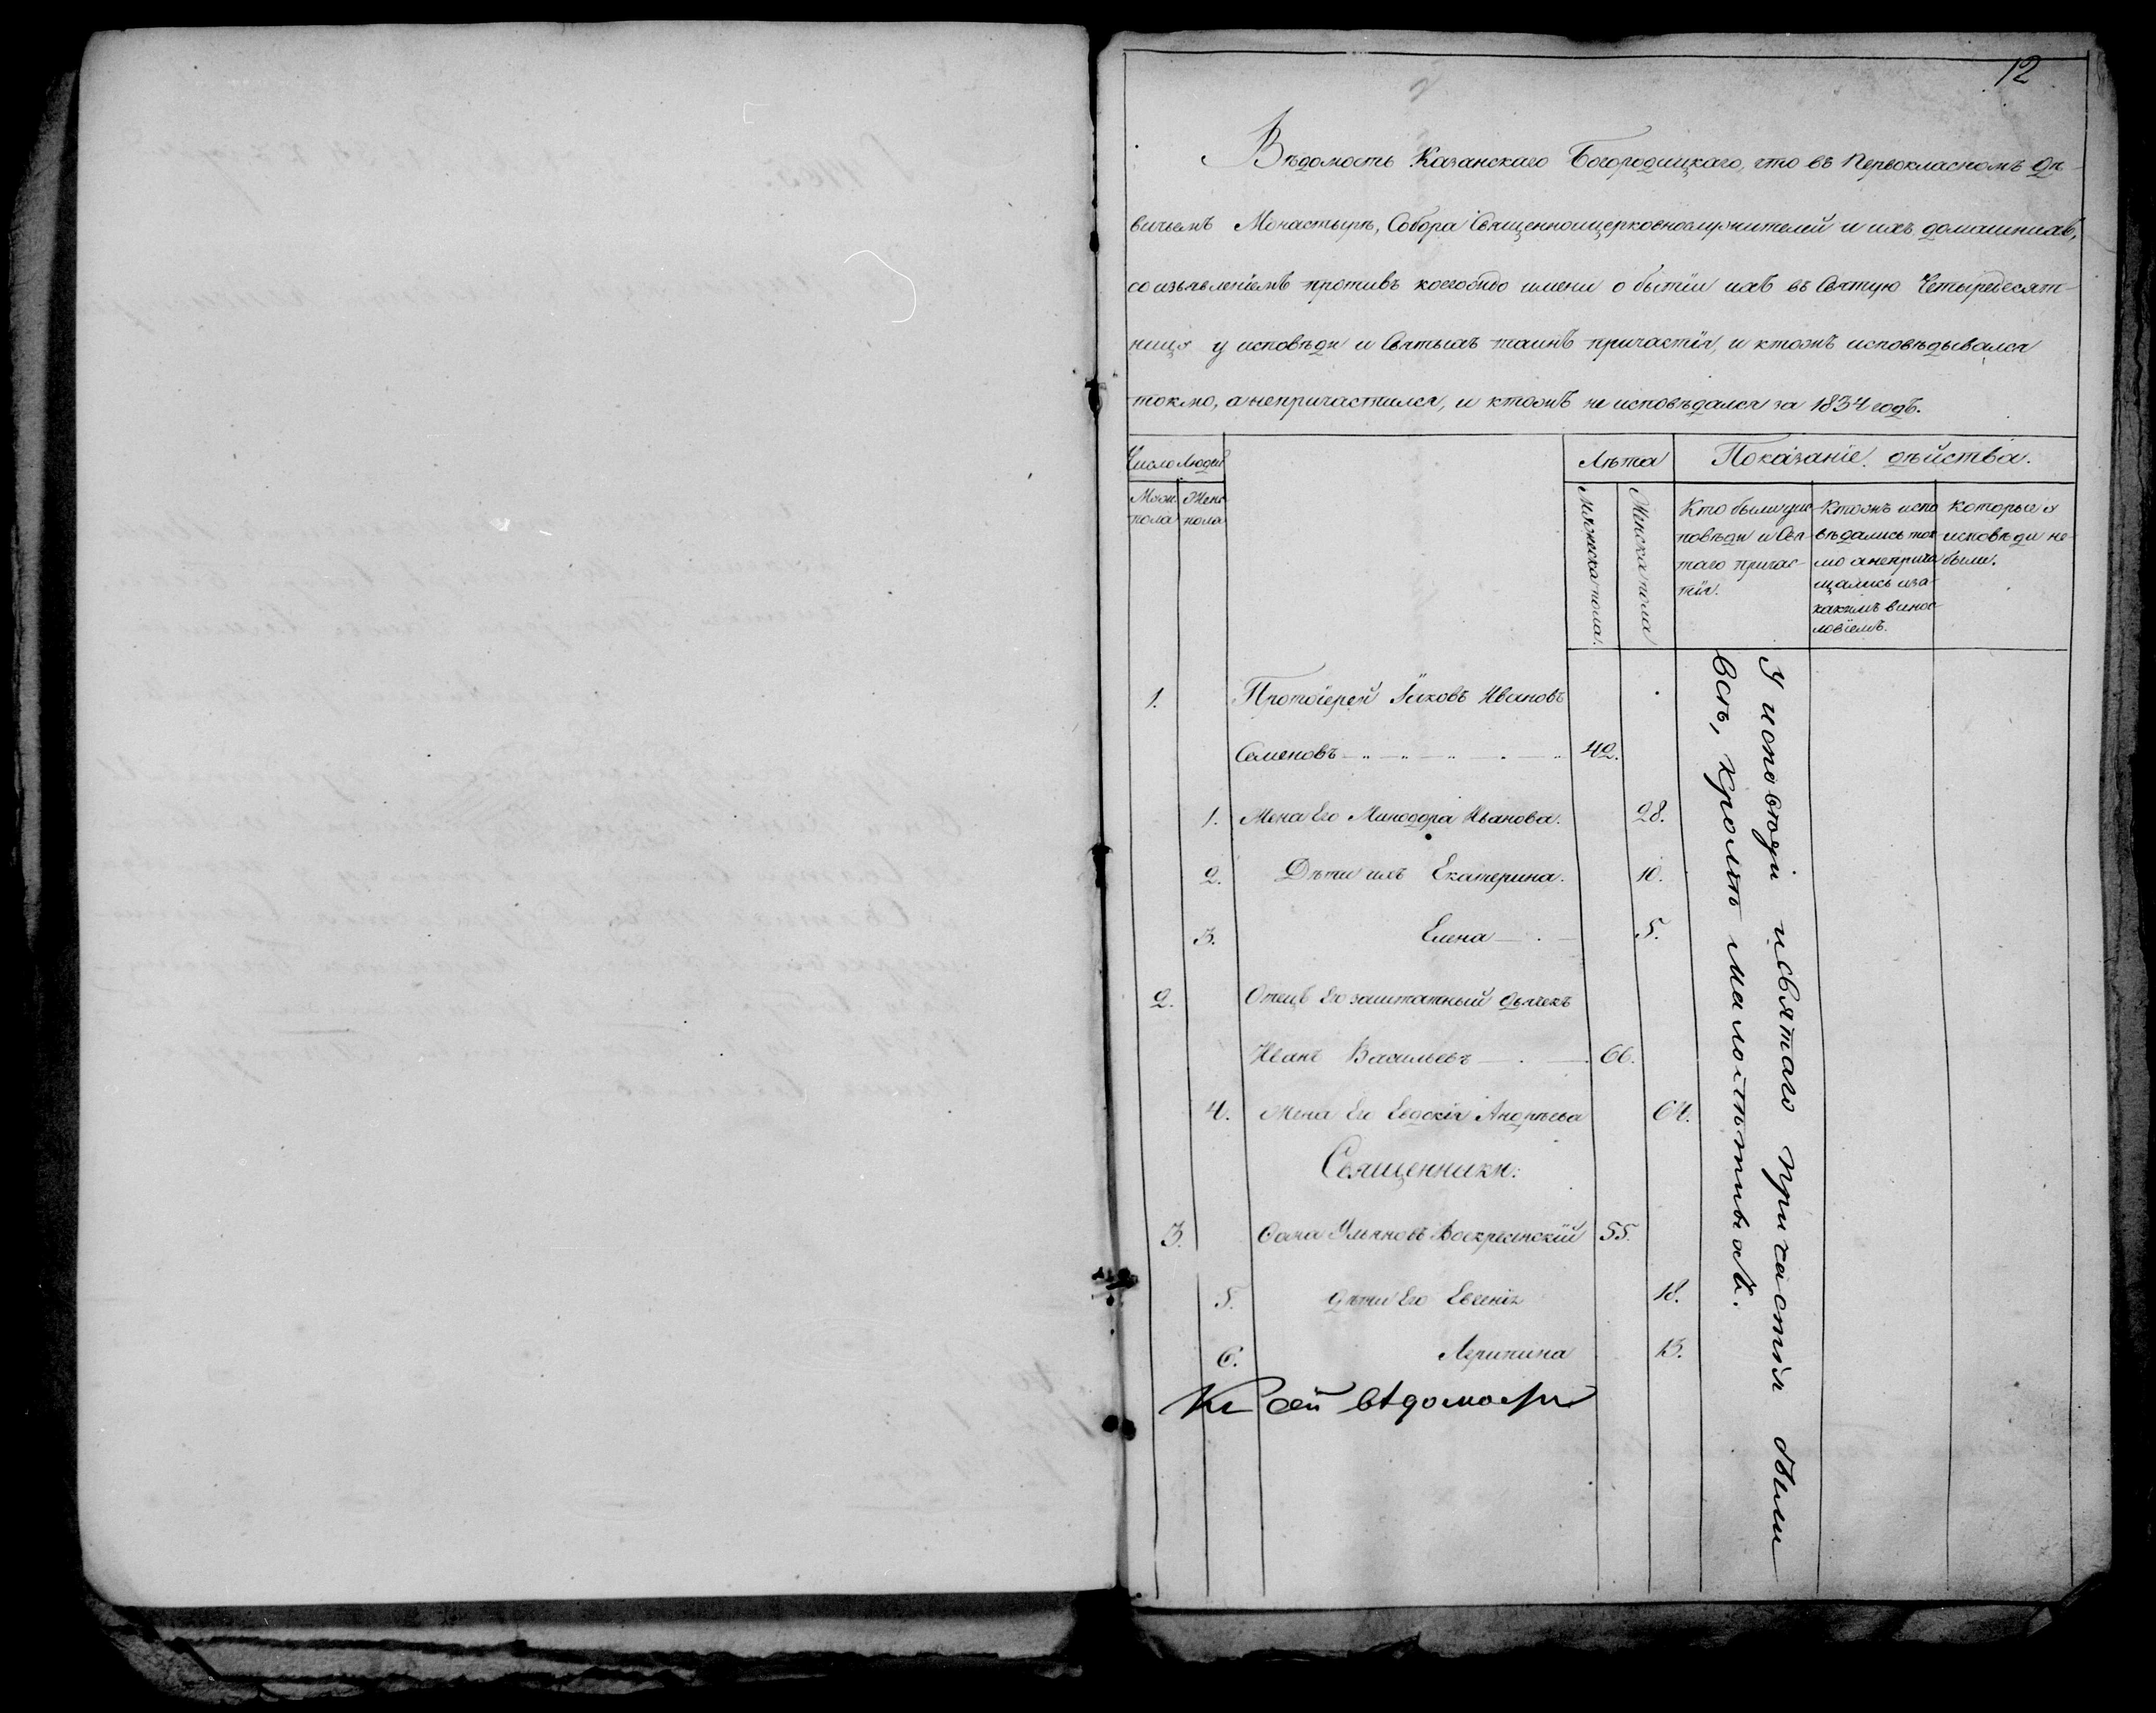 12
Вѣдомость Казанскаго Богородицкаго, что въ Первокласномъ дѣ-
вичьемъ Монастырѣ, Собора Священноицерковнослужителей и ихъ домашнихъ,
со изъявленіемъ противъ коегождо имени о бытіи ихъ въ Святую Четыредесят-
ницу у исповѣди и Святыхъ таинъ причастія, и ктожъ исповѣдывался
токмо, а непричастился, и ктожъ не исповѣдался за 1834 годъ.
Число людей
Муж. пола
Жен. пола
Лѣта
Мужска пола.
Женска пола
Показаніе дѣйства.
Кто были у ис-
повѣди и Свя-
таго причас-
тія.
Ктожъ испо
вѣдались ток
мо а неприча
щались и за
какимъ винос
ловіемъ.
Которые у
исповѣди не
были.
1. Протоіерей Іаковъ Ивановъ
Семеновъ 42.
1. Жена Его Минодора Иванова. 28.
2. Дѣти ихъ Екатерина. 10.
3. Елена 5.
2. Отецъ Его заштатный дьячекъ
Иванъ Васильевъ 66.
4. Жена Его Евдокія Андрѣева 64.
Священники:
3. Ѳома Ульяновъ Воскресенскій 55.
5. Дѣти Его Евгенія 18.
6. Агрипина 13.
У исповѣди и Святаго причастія были
всѣ, кромѣ малолѣтныхъ.
Къ сей вѣдомости